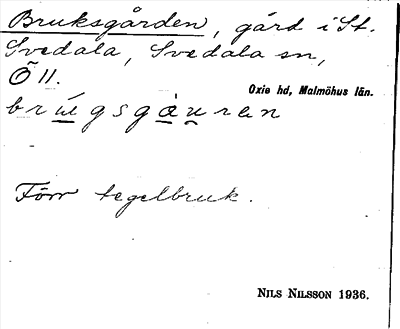 Bruksgården, gård i St.
Svedala, Svedala sn,
Ö 11.
Oxie hd, Malmöhus län.
brúgsgàuren
Förr tegelbruk.
NILS NILSSON 1936.